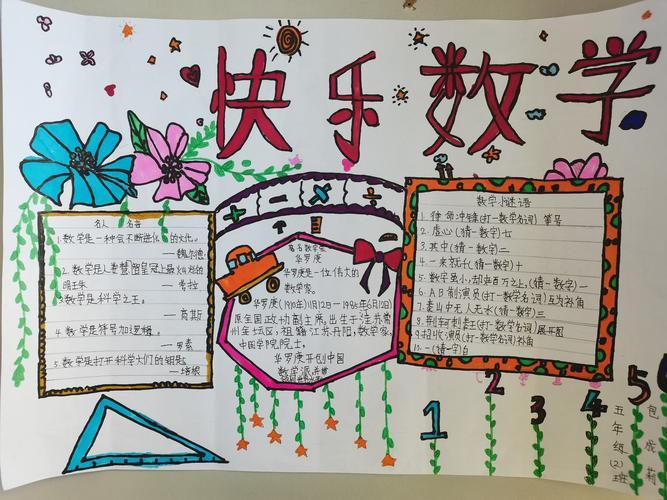 快乐数学
+ - × ÷
名人 名言
1.数学是一种会不断进化的文化。
—魏尔德
2.数学是人类智慧皇冠上最灿烂的
明王朱
—考拉
3.数学是科学之王。
—高斯
4.数学是符号加逻辑。
—罗素
5.数学是打开科学大门的钥匙。
—培根
著名数学家
华罗庚
华罗庚是一位伟大的
数学家。
华罗庚(1910年11月12日—1985年6月12日)
原全国政协副主席。出生于江苏常
州金坛区,祖籍江苏丹阳,数学家,
中国科学院院士。
华罗庚开创中国
数学派并
数学小谜语
1.待命冲锋(打一数学名词)等号
2.虚心(猜一数字)七
3.其中(猜一数字)二
4.一来就千(猜一数字)十
5.数字虽小,却在百万之上,(猜一数字)一
6.AB制演员(打一数学名词)互为补角
7.泰山中无人无水(猜一数字)三
8.荆轲刺秦王(打一数学名词)展开图
9.招收演员(打一数学名词)补角
10.一(猜一字)白
1 2 3 4 5
五年级(2)班
包成莉